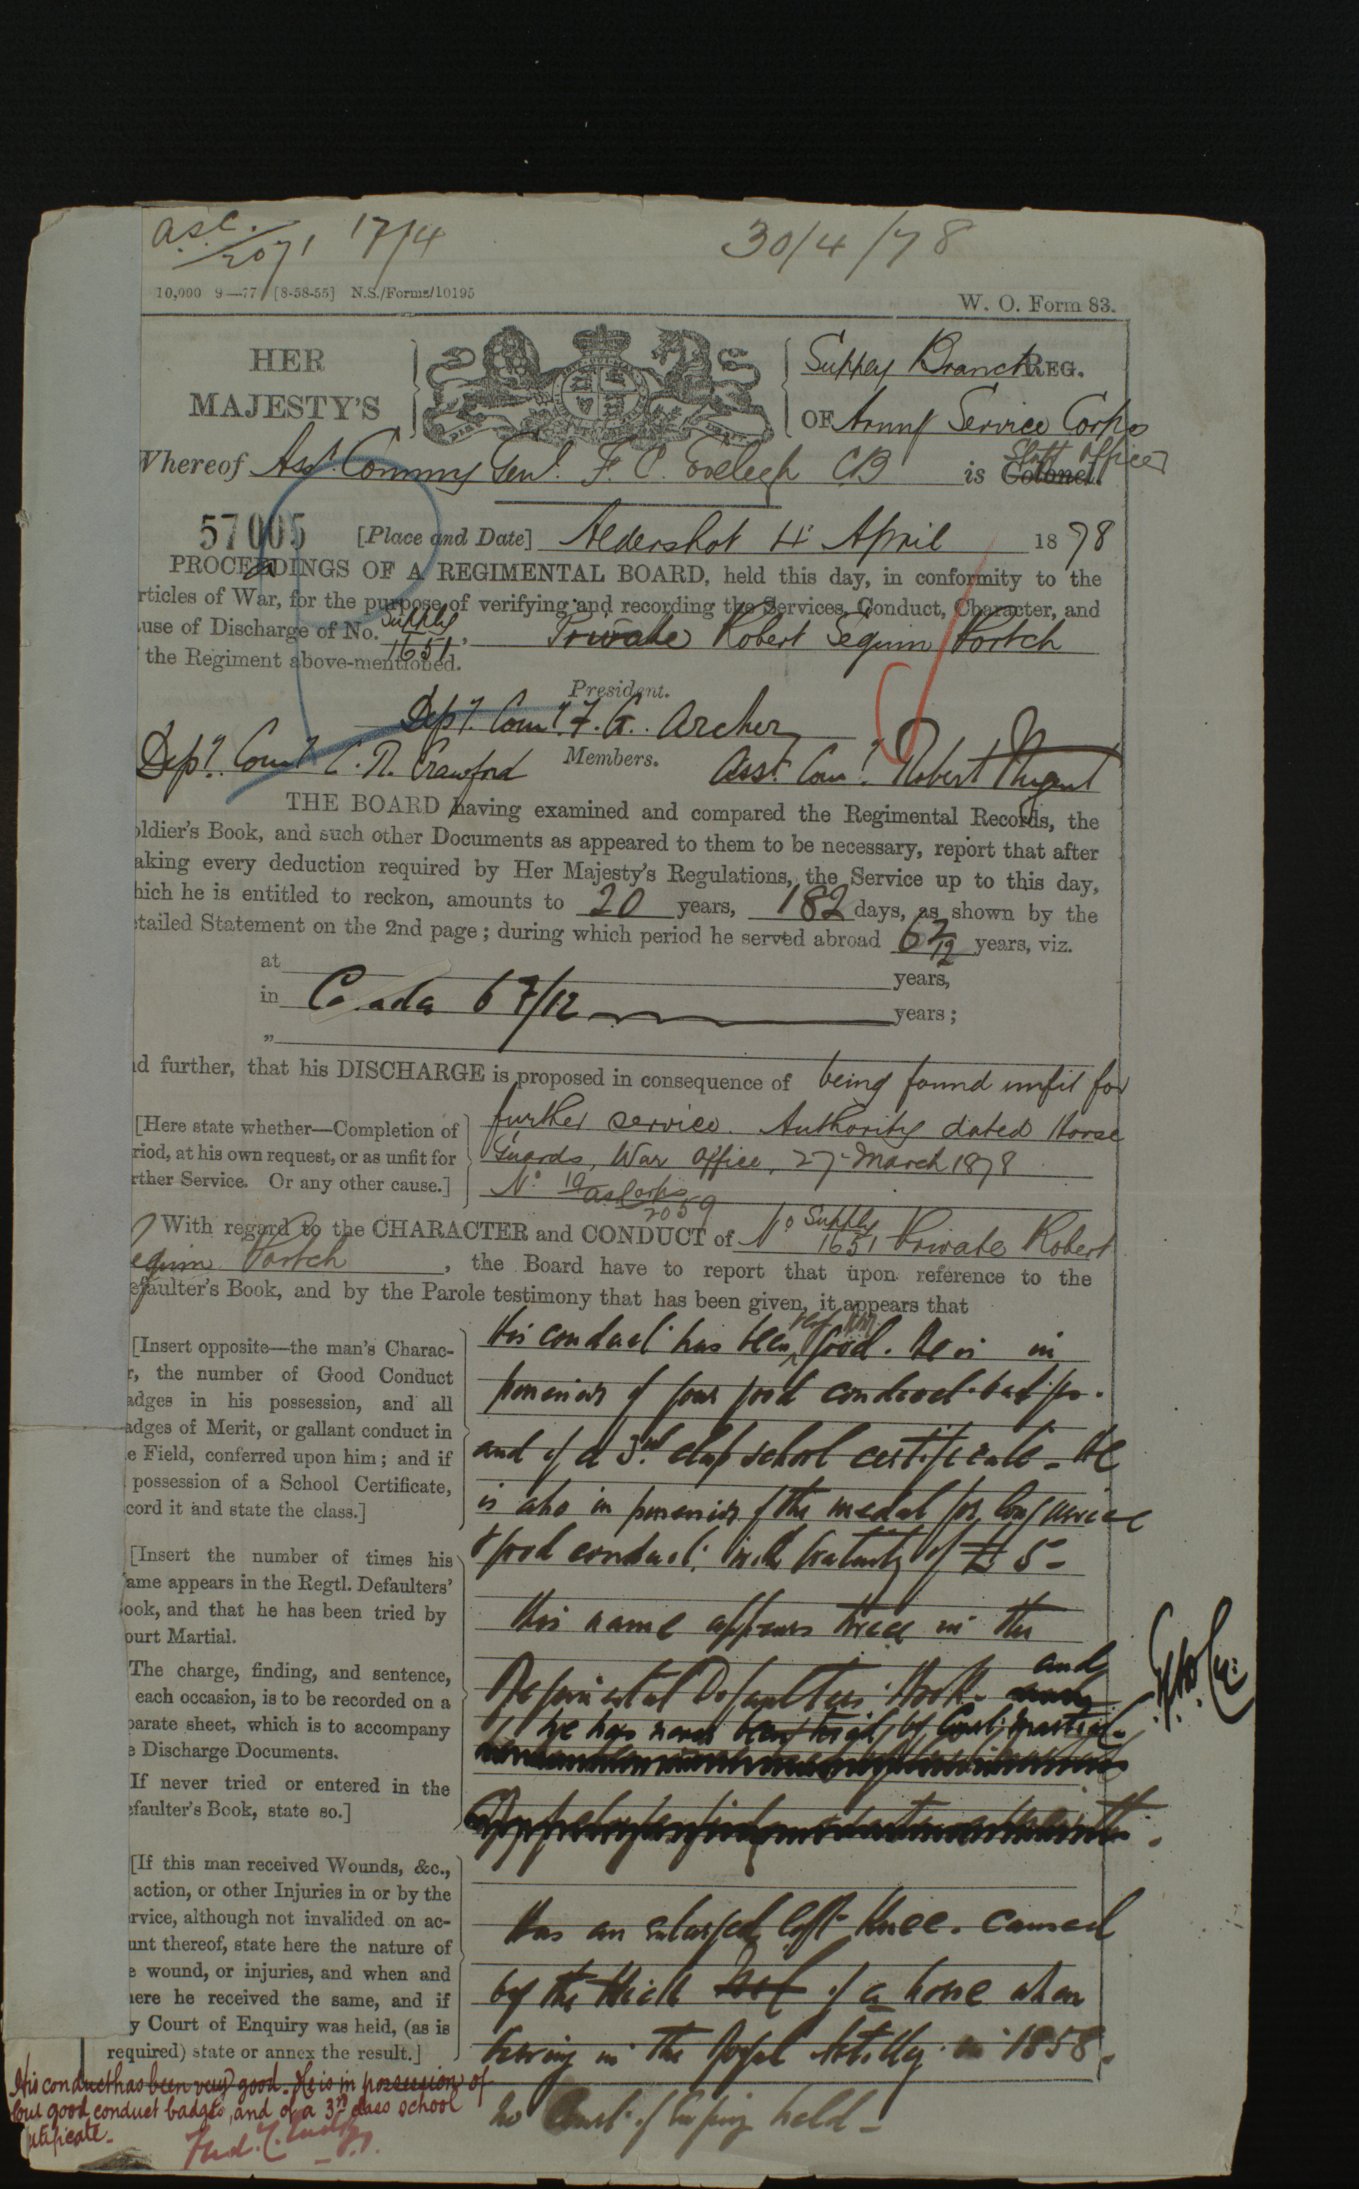 a.s.c. 17/4
2071
30/4/78
10,000 9—77 [8-58-55] N.S./Forms/10195
W. O. Form 83.
HER
MAJESTY'S
Supply Branch REG.
OF Army Service Corps
Staff Officer
Whereof Asst Commy Genl. F. C. Eveleigh CB is Colonel.
57005 [Place and Date] Aldershot 4 April 1878
PROCEEDINGS OF A REGIMENTAL BOARD, held this day, in conformity to the
rticles of War, for the purpose of verifying and recording the Services, Conduct, Character, and
use of Discharge of No. Supply 1651. Private Robert Sequin Portch
the Regiment above-mentioned.
President.
Depy. Comy F. G. Archer
Members.
Depy. Comy C. N. Crawford Asst. Comy. Robert Nugent
THE BOARD having examined and compared the Regimental Records, the
oldier's Book, and such other Documents as appeared to them to be necessary, report that after
aking every deduction required by Her Majesty's Regulations, the Service up to this day,
hich he is entitled to reckon, amounts to 20 years, 182 days, as shown by the
etailed Statement on the 2nd page; during which period he served abroad 6 7/12 years, viz.
at years,
in Canada 6 7/12 years;
„
nd further, that his DISCHARGE is proposed in consequence of being found unfit for
[Here state whether—Completion of
riod, at his own request, or as unfit for
rther Service. Or any other cause.]
further service. Authority dated Horse
Guards, War Office, 27 March 1878
No. 19 as Corps 2059
With regard to the CHARACTER and CONDUCT of No Supply 1651 Private Robert
equin Portch, the Board have to report that upon reference to the
efaulter's Book, and by the Parole testimony that has been given, it appears that
[Insert opposite—the man's Charac-
r, the number of Good Conduct
adges in his possession, and all
adges of Merit, or gallant conduct in
e Field, conferred upon him; and if
possession of a School Certificate,
cord it and state the class.]
very
His conduct has been good. He is in
possession of four good conduct badges.
and of a 3rd class school certificate - He
is also in possession of the medal for long service
& good conduct with Gratuity of £5-
[Insert the number of times his
ame appears in the Regtl. Defaulters'
ook, and that he has been tried by
ourt Martial.
The charge, finding, and sentence,
each occasion, is to be recorded on a
parate sheet, which is to accompany
e Discharge Documents.
If never tried or entered in the
efaulter's Book, state so.]
His name appears twice in the
Regimental Defaulters Book and
he has never been tried by Court martial-
[If this man received Wounds, &c.,
action, or other Injuries in or by the
rvice, although not invalided on ac-
unt thereof, state here the nature of
e wound, or injuries, and when and
here he received the same, and if
y Court of Enquiry was held, (as is
required) state or annex the result.]
Has an enlarged left knee. caused
by the kick of a horse when
serving in the Royal Artillery in 1858.
no Court of Enquiry held -
His conduct has been very good. He is in possession of
four good conduct badges, and of a 3rd class school
certificate-